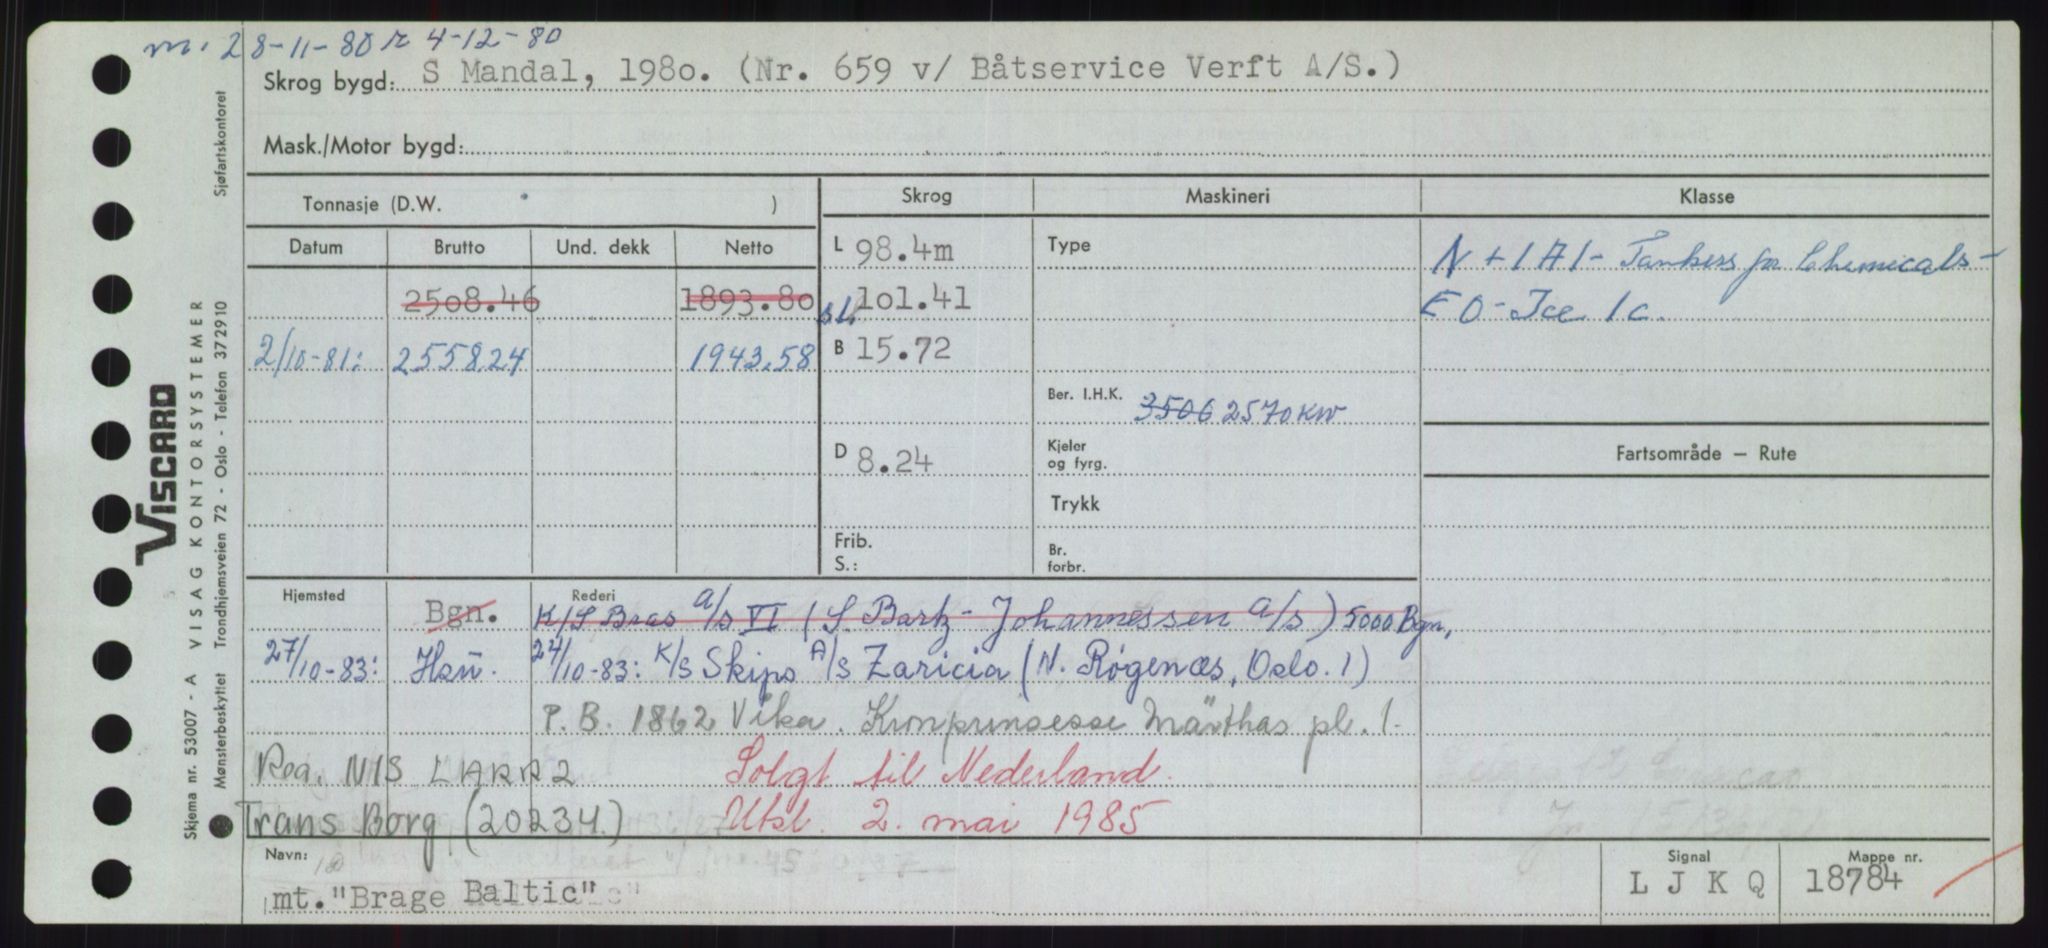 m. 28-11-80 r 4-12-80
Skrog bygd: S Mandal, 1980. (Nr. 659 v/ Båtservice Verft A/S.)
Mask./Motor bygd:
Tonnasje (D.W. )
Skrog Maskineri Klasse
Datum Brutto Und. dekk Netto
L 98.4m Type N + 1A1 - Tankers for Chemicals -
2508.46 1893.80 101.41 E0 - Ice 1c.
2/10-81: 2558.24 1943.58 B 15.72
Ber. I.H.K. 3506 2570 KW
D 8.24 Kjeler og fyrg. Fartsområde — Rute
Trykk
Frib. S.: Br. forbr.
Hjemsted Rederi
Bgn. K/S Bras A/S VI (S. Bartz-Johannessen A/S) 5000 Bgn.
27/10-83: Hsu. 27/10-83: K/S Skips A/S Zaricia (N. Røgenæs, Oslo. 1)
P. B. 1862 Vika. Kronprinsesse Märthas pl. 1.
Reg. NIS LARR2 Solgt til Nederland.
Trans Borg (20234.) Utsl. 2. mai 1985
Navn: Signal Mappe nr.
mt. "Brage Baltic" L J K Q 18784
VISCARD
Skjema nr. 53007 - A VISAG KONTORSYSTEMER
Mønsterbeskyttet Trondhjemsveien 72 - Oslo - Telefon 372910 Sjøfartskontoret